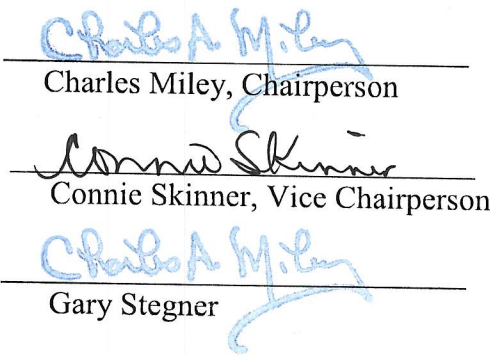 Charles A. Miley
Charles Miley, Chairperson
Connie Skinner
Connie Skinner, Vice Chairperson
Charles A. Miley
Gary Stegner